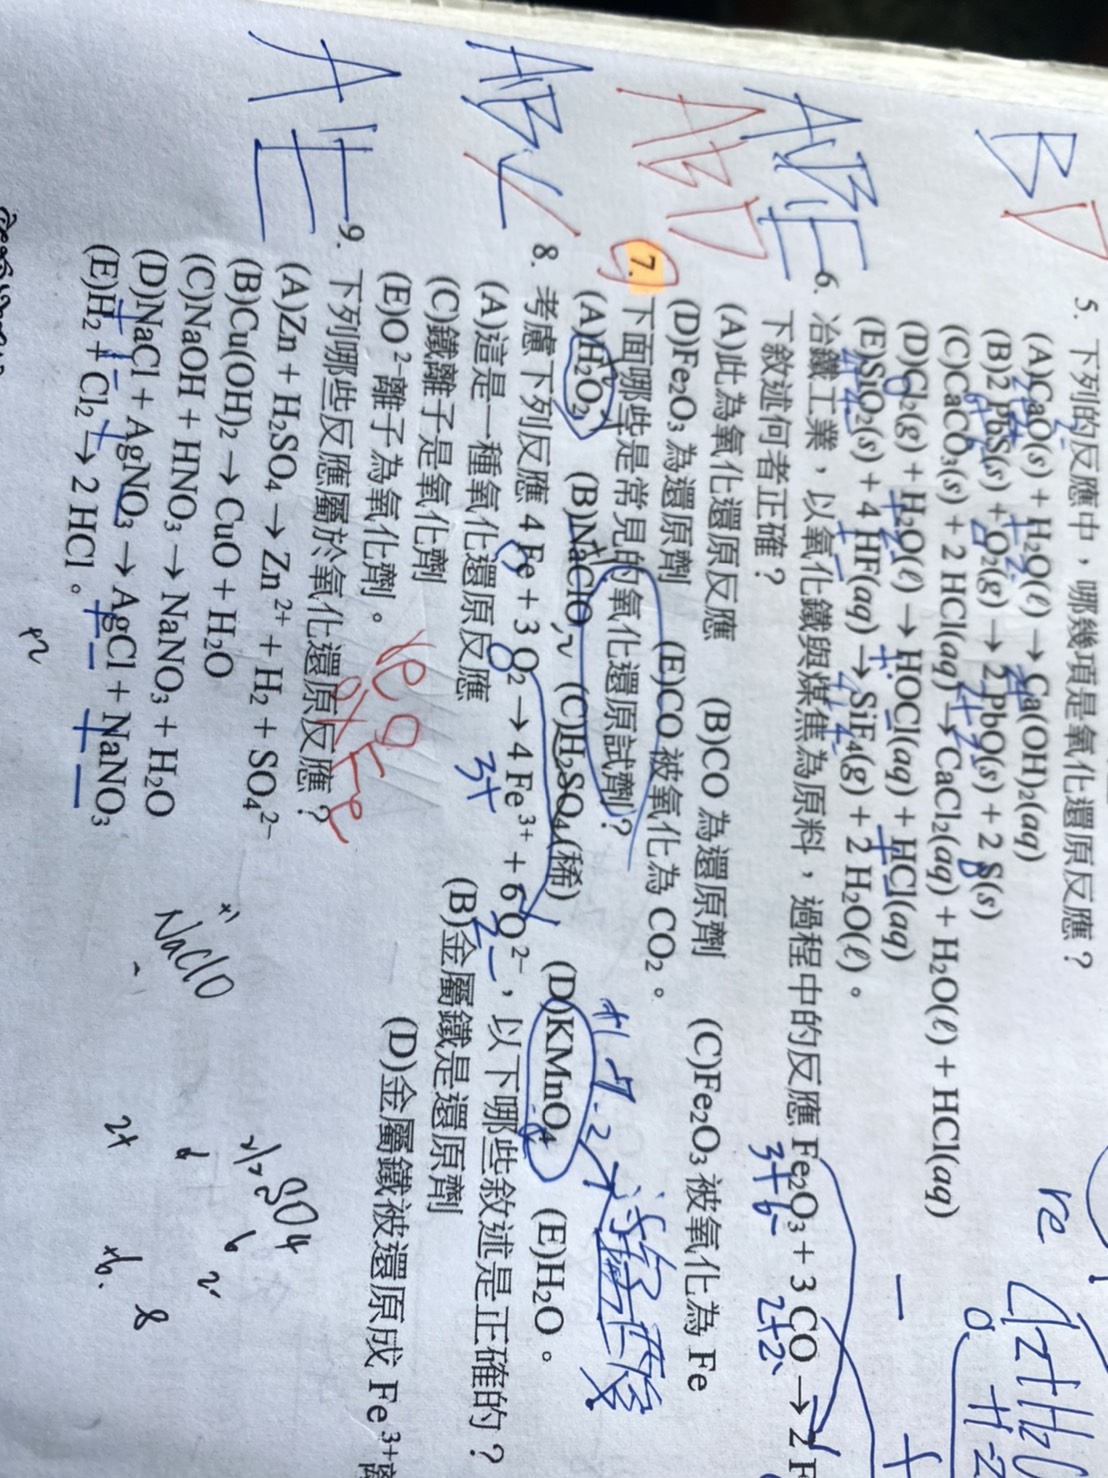 BD
5. 下列的反應中，哪幾項是氧化還原反應？
(A)CaO(s) + H₂O(ℓ) → Ca(OH)₂(aq)
(B)2 PbS(s) + O₂(g) → 2 PbO(s) + 2 S(s)
(C)CaCO₃(s) + 2 HCl(aq) → CaCl₂(aq) + H₂O(ℓ) + HCl(aq)
(D)Cl₂(g) + H₂O(ℓ) → HOCl(aq) + HCl(aq)
(E)SiO₂(s) + 4 HF(aq) → SiF₄(g) + 2 H₂O(ℓ)。
ABE
6. 冶鐵工業，以氧化鐵與煤焦為原料，過程中的反應 Fe₂O₃ + 3 CO → 2 F
下敘述何者正確？
(A)此為氧化還原反應 (B)CO 為還原劑 (C)Fe₂O₃ 被氧化為 Fe
(D)Fe₂O₃ 為還原劑 (E)CO 被氧化為 CO₂。
ABD
7. 下面哪些是常見的氧化還原試劑？
(A)H₂O₂ (B)NaClO (C)H₂SO₄(稀) (D)KMnO₄ (E)H₂O。
AB
8. 考慮下列反應 4 Fe + 3 O₂ → 4 Fe³⁺ + 6 O²⁻，以下哪些敘述是正確的？
(A)這是一種氧化還原反應 (B)金屬鐵是還原劑
(C)鐵離子是氧化劑 (D)金屬鐵被還原成 Fe³⁺離
(E)O²⁻離子為氧化劑。
AE
9. 下列哪些反應屬於氧化還原反應？
(A)Zn + H₂SO₄ → Zn²⁺ + H₂ + SO₄²⁻
(B)Cu(OH)₂ → CuO + H₂O
(C)NaOH + HNO₃ → NaNO₃ + H₂O
(D)NaCl + AgNO₃ → AgCl + NaNO₃
(E)H₂ + Cl₂ → 2 HCl。
NaClO
SO4
re